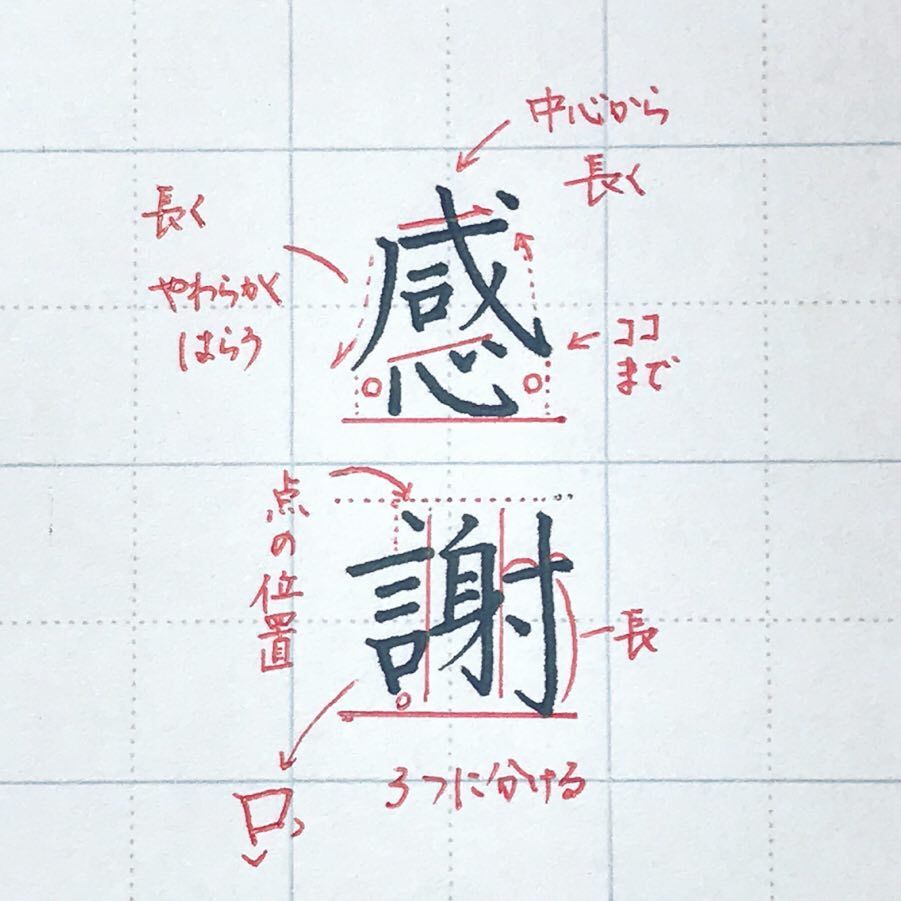 中心から
長く
長く
やわらかく
はらう
感
ココ
まで
点の位置
謝
長
口
3つに分ける